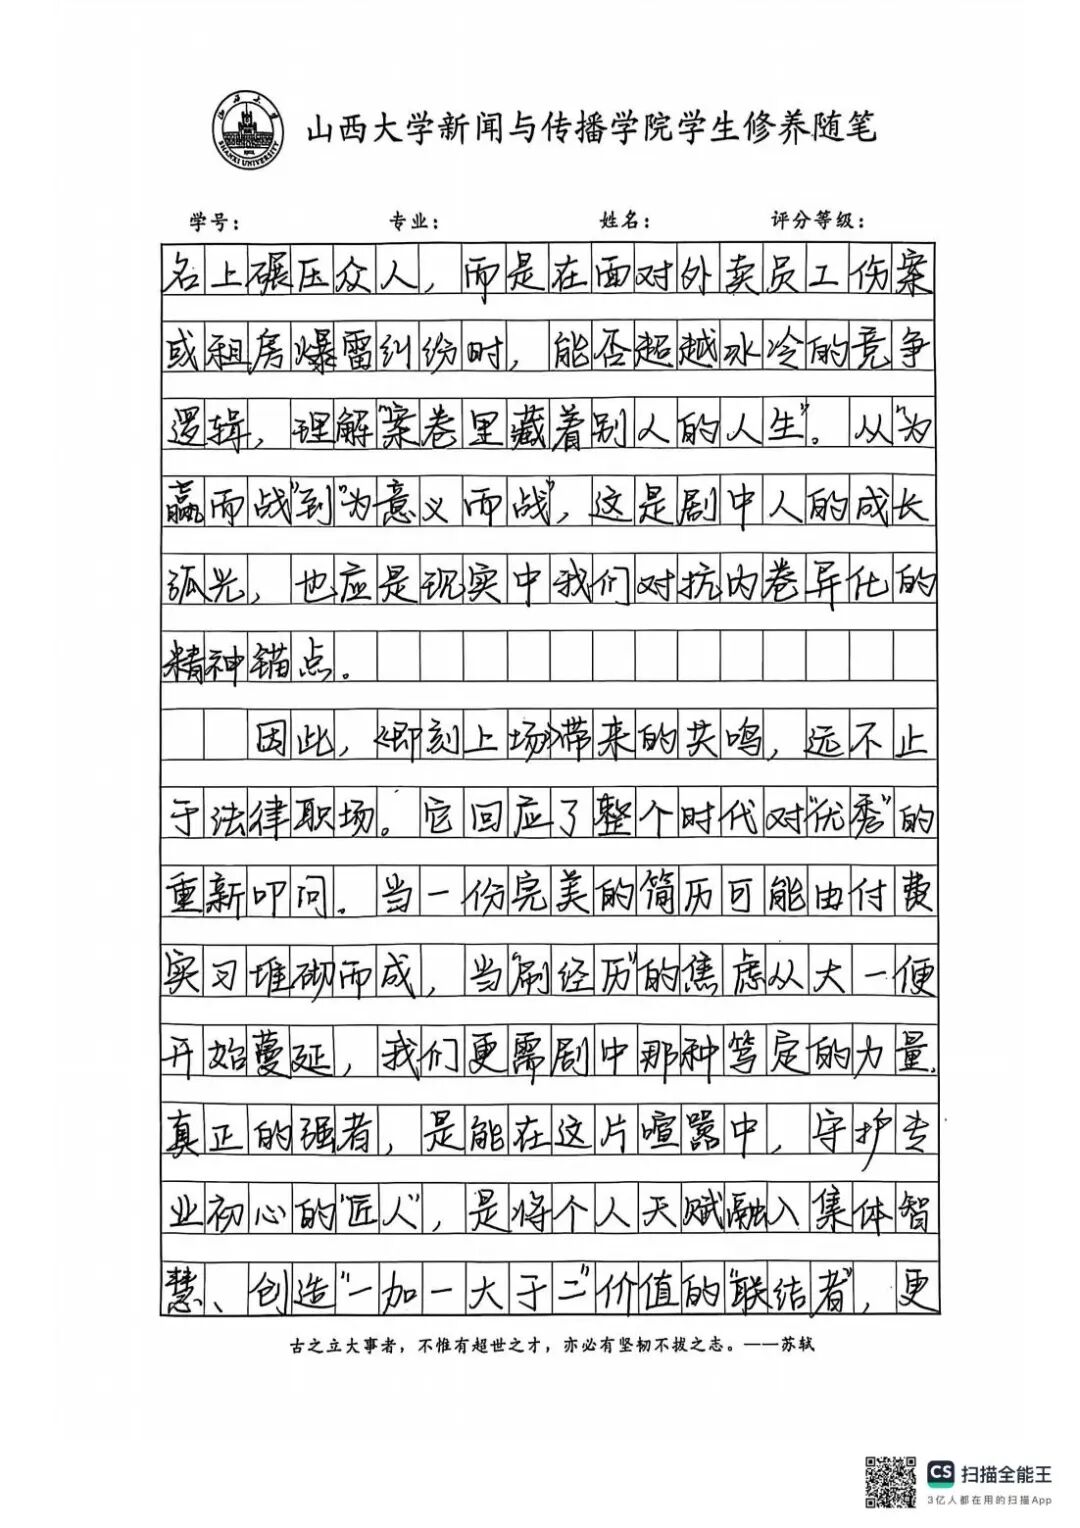 山西大学
SHANXI UNIVERSITY
山西大学新闻与传播学院学生修养随笔
学号： 专业： 姓名： 评分等级：
名上碾压众人，而是在面对外卖员工伤案
或租房爆雷纠纷时，能否超越冰冷的竞争
逻辑，理解“案卷里藏着别人的人生”。从“为
赢而战”到“为意义而战”，这是剧中人的成长
弧光，也应是现实中我们对抗内卷异化的
精神锚点。
因此，《即刻上场》带来的共鸣，远不止
于法律职场。它回应了整个时代对“优秀”的
重新叩问。当一份完美的简历可能由付费
实习堆砌而成，当“刷经历”的焦虑从大一便
开始蔓延，我们更需剧中那种笃定的力量.
真正的强者，是能在这片喧嚣中，守护专
业初心的“匠人”，是将个人天赋融入集体智
慧、创造“一加一大于二”价值的“联结者”，更
古之立大事者，不惟有超世之才，亦必有坚韧不拔之志。——苏轼
CS 扫描全能王
3亿人都在用的扫描App